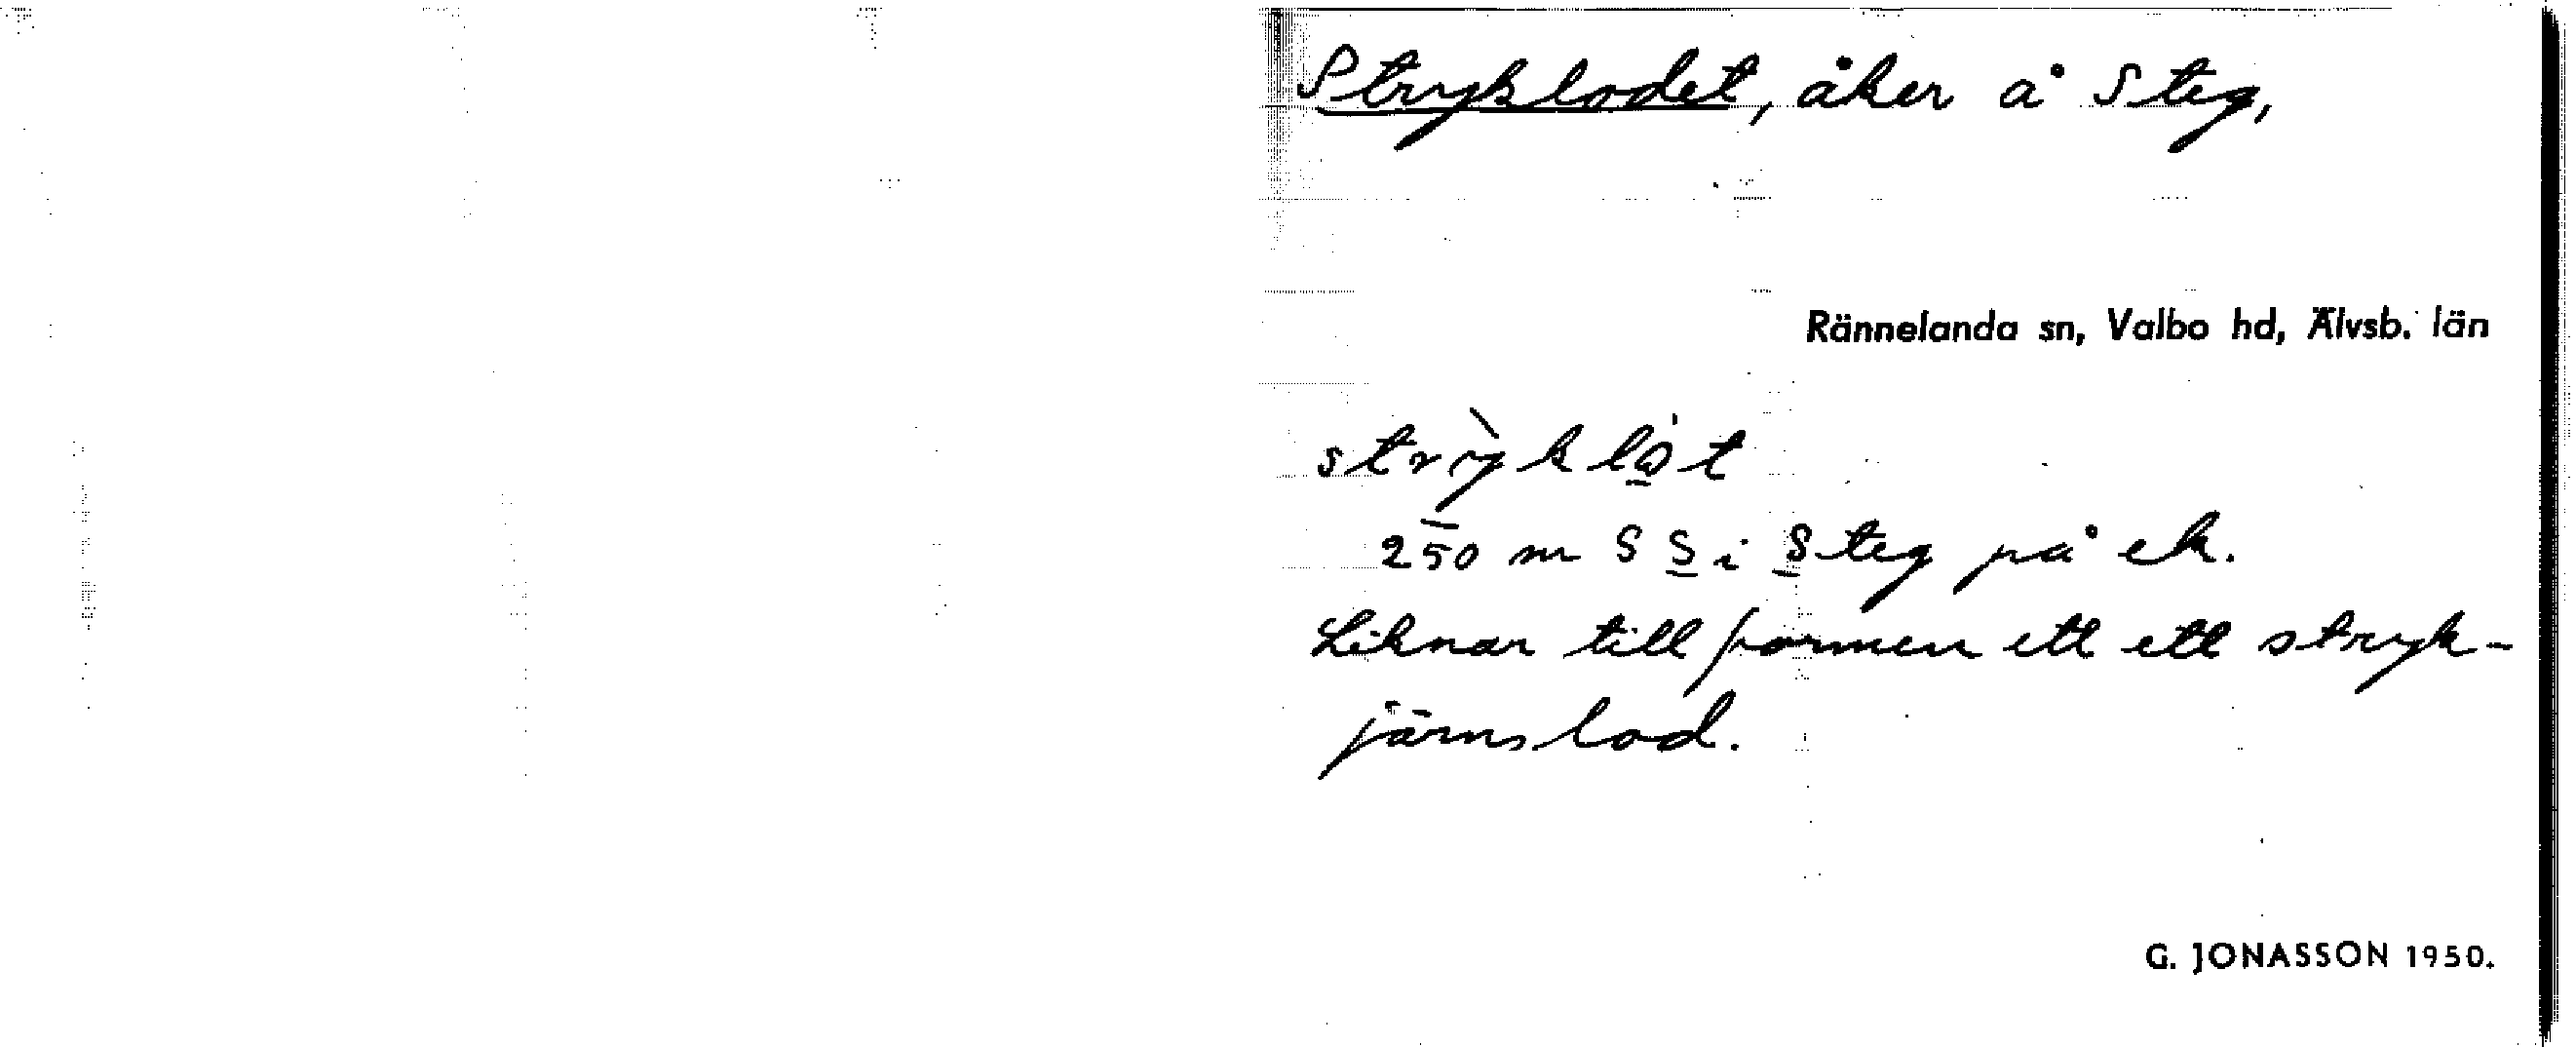 Stryklodet, åker å Steg,
Rännelanda sn, Valbo hd, Älvsb. län
strỳklo̠̍t
250 m S S̲ i S̲teg på ek.
Liknar till formen ett ett stryk-
järnslod.
G. JONASSON 1950.